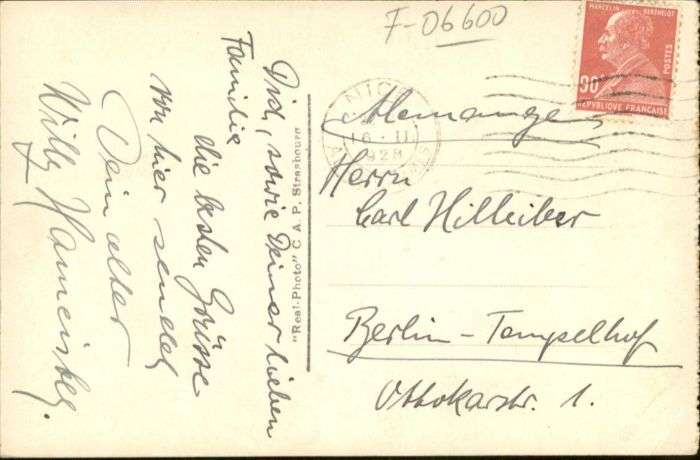 F-06600
MARCELIN BERTHELOT
POSTES
90
REPVBLIQVE FRANÇAISE
NICE
16 - II
1928
Allemagne
Herrn
Carl Hilleiber
Berlin-Tempelhof
Ottokarstr. 1.
"Real-Photo" C. A. P. Strasbourg
Dir, sowie Deiner lieben
Familie
die besten Grüsse
von hier sendet
Dein alter
Willy